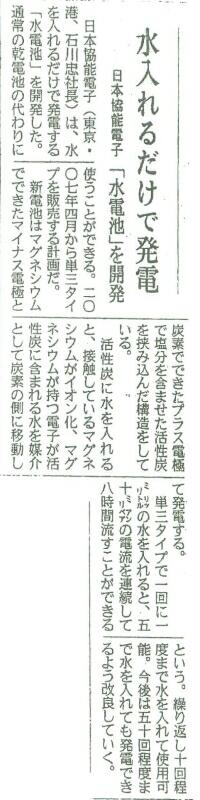 水入れるだけで発電
日本協能電子「水電池」を開発
日本協能電子(東京・
港、石川忠社長)は、水
を入れるだけで発電する
「水電池」を開発した。
通常の乾電池の代わりに
使うことができる。二〇
〇七年四月から単三タイ
プを販売する計画だ。
新電池はマグネシウム
でできたマイナス電極と
炭素でできたプラス電極
で塩分を含ませた活性炭
を挟み込んだ構造をして
いる。
活性炭に水を入れる
と、接触しているマグネ
シウムがイオン化、マグ
ネシウムが持つ電子が活
性炭に含まれる水を媒介
として炭素の側に移動し
て発電する。
単三タイプで一回に一
ミリリットルの水を入れると、五
十ミリアンペアの電流を連続して
八時間流すことができる
という。繰り返し十回程
度まで水を入れて使用可
能。今後は五十回程度ま
で水を入れても発電でき
るよう改良していく。